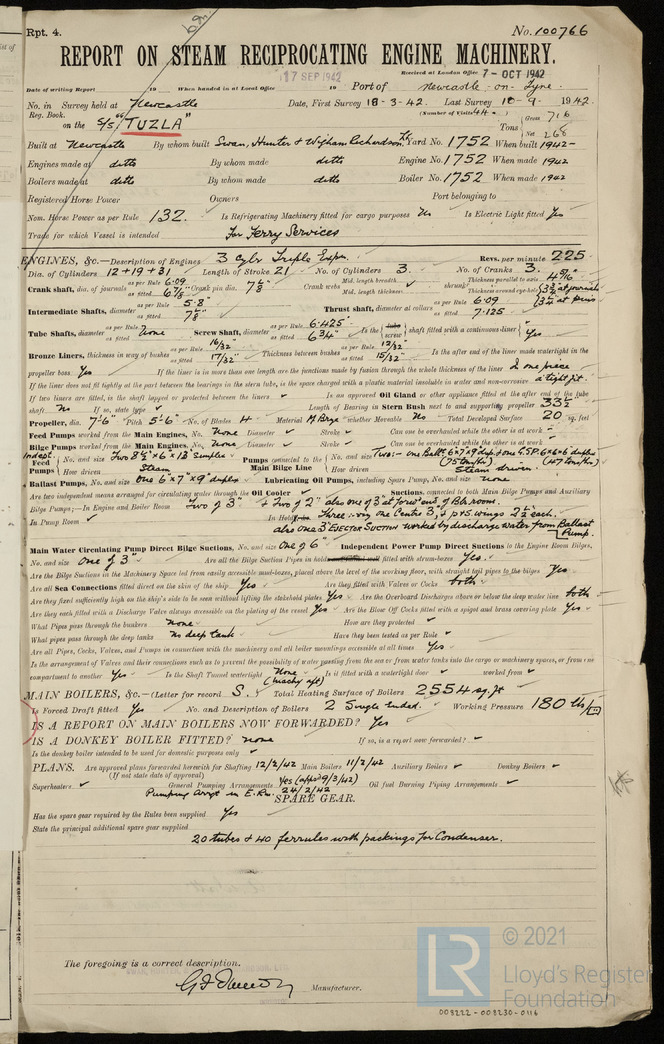 Rpt. 4.
No. 100766
REPORT ON STEAM RECIPROCATING ENGINE MACHINERY.
17 SEP 1942
Received at London Office 7 - OCT 1942
Date of writing Report 19 When handed in at Local Office 19 Port of Newcastle-on-Tyne
No. in Survey held at Newcastle Date, First Survey 18-3-42 Last Survey 10-9-1942
Reg. Book. (Number of Visits 44)
on the S/S "TUZLA" Tons Gross 716 Net 268
Built at Newcastle By whom built Swan, Hunter & Wigham Richardson Ltd Yard No. 1752 When built 1942
Engines made at ditto By whom made ditto Engine No. 1752 When made 1942
Boilers made at ditto By whom made ditto Boiler No. 1752 When made 1942
Registered Horse Power Owners Port belonging to
Nom. Horse Power as per Rule 132. Is Refrigerating Machinery fitted for cargo purposes No Is Electric Light fitted Yes
Trade for which Vessel is intended For Ferry Services
ENGINES, &c.—Description of Engines 3 Cylr Triple Expn. Revs. per minute 225
Dia. of Cylinders 12 + 19 + 31 Length of Stroke 21 No. of Cylinders 3. No. of Cranks 3.
Crank shaft, dia. of journals as per Rule 6.09 as fitted 6 7/8" Crank pin dia. 7 1/8" Crank webs Mid. length breadth Mid. length thickness shrunk Thickness parallel to axis 4 9/16" Thickness around eye-hole
Intermediate Shafts, diameter as per Rule 5.8" as fitted Thrust shaft, diameter at collars as per Rule 6.09 as fitted 7.125
Tube Shafts, diameter as per Rule None as fitted Screw Shaft, diameter as per Rule 6.425" as fitted 6 3/4" Is the tube screw shaft fitted with a continuous liner Yes
Bronze Liners, thickness in way of bushes as per Rule 16/32" as fitted 17/32" Thickness between bushes as per Rule 12/32" as fitted 15/32" Is the after end of the liner made watertight in the
propeller boss Yes If the liner is in more than one length are the junctions made by fusion through the whole thickness of the liner In one piece
If the liner does not fit tightly at the part between the bearings in the stern tube, is the space charged with a plastic material insoluble in water and non-corrosive a tight fit.
If two liners are fitted, is the shaft lapped or protected between the liners Is an approved Oil Gland or other appliance fitted at the after end of the tube
shaft No If so, state type Length of Bearing in Stern Bush next to and supporting propeller 33 1/2
Propeller, dia. 7'-6" Pitch 5'-6" No. of Blades 4 Material M Brze whether Moveable No Total Developed Surface 20 sq. feet
Feed Pumps worked from the Main Engines, No. None Diameter Stroke Can one be overhauled while the other is at work
Bilge Pumps worked from the Main Engines, No. None Diameter Stroke Can one be overhauled while the other is at work
Indept. Feed Pumps No. and size Two 8 1/2" x 6" x 13" simplex How driven Steam Pumps connected to the Main Bilge Line No. and size Two:- one Ballt. 6" x 7" x 9" dup. + one G.S.P. 6 x 6 x 6 duplex (75 tons/hr) (47 tons/hr) How driven Steam driven.
Ballast Pumps, No. and size One 6" x 7" x 9" duplex Lubricating Oil Pumps, including Spare Pump, No. and size none
Are two independent means arranged for circulating water through the Oil Cooler Suctions, connected to both Main Bilge Pumps and Auxiliary
Bilge Pumps;—In Engine and Boiler Room Two of 3" + Two of 2" also one of 3" at forwd end of Blr room.
In Pump Room In Holds, &c. Three:- viz one Centre 3", & p & s. wings 2 1/2 each.
also one 3" EJECTOR SUCTION worked by discharge water from Ballast Pump.
Main Water Circulating Pump Direct Bilge Suctions, No. and size One of 6" Independent Power Pump Direct Suctions to the Engine Room Bilges,
No. and size One of 3" Are all the Bilge Suction Pipes in holds fitted with strum-boxes Yes.
Are the Bilge Suctions in the Machinery Space led from easily accessible mud-boxes, placed above the level of the working floor, with straight tail pipes to the bilges Yes
Are all Sea Connections fitted direct on the skin of the ship Yes Are they fitted with Valves or Cocks both
Are they fixed sufficiently high on the ship's side to be seen without lifting the stokehold plates Yes Are the Overboard Discharges above or below the deep water line both
Are they each fitted with a Discharge Valve always accessible on the plating of the vessel Yes Are the Blow Off Cocks fitted with a spigot and brass covering plate Yes
What Pipes pass through the bunkers none How are they protected
What pipes pass through the deep tanks No deep tank Have they been tested as per Rule
Are all Pipes, Cocks, Valves, and Pumps in connection with the machinery and all boiler mountings accessible at all times Yes
Is the arrangement of Valves and their connections such as to prevent the possibility of water passing from the sea or from water tanks into the cargo or machinery spaces, or from one
compartment to another Yes Is the Shaft Tunnel watertight None (machy aft) Is it fitted with a watertight door worked from
MAIN BOILERS, &c.—(Letter for record S.) Total Heating Surface of Boilers 2554 sq. ft
Is Forced Draft fitted Yes No. and Description of Boilers 2 Single Ended. Working Pressure 180 lb/□"
IS A REPORT ON MAIN BOILERS NOW FORWARDED? Yes
IS A DONKEY BOILER FITTED? none If so, is a report now forwarded?
Is the donkey boiler intended to be used for domestic purposes only
PLANS. Are approved plans forwarded herewith for Shafting 12/2/42 Main Boilers 11/2/42 Auxiliary Boilers Donkey Boilers
(If not state date of approval)
Superheaters General Pumping Arrangements Yes (appd 9/3/42) Oil fuel Burning Piping Arrangements
Pumping Arrgt in E. Rm. 24/2/42
SPARE GEAR.
Has the spare gear required by the Rules been supplied Yes
State the principal additional spare gear supplied
20 tubes + 40 ferrules with packings for Condenser.
The foregoing is a correct description.
Manufacturer.
© 2021
LR
Lloyd's Register
Foundation
008222-008230-0116